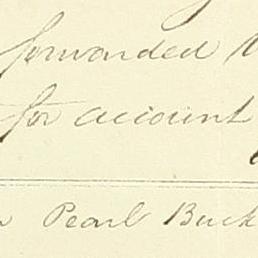 forwarded
for account
Pearl Buck